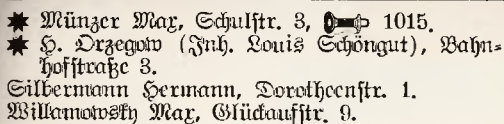 ✷ Münzer Max, Schulstr. 3, 1015.
✷ H. Orzegow (Inh. Louis Schöngut), Bahn=
hofstraße 3.
Silbermann Hermann, Dorotheenstr. 1.
Willamowsky Max, Glückaufstr. 9.